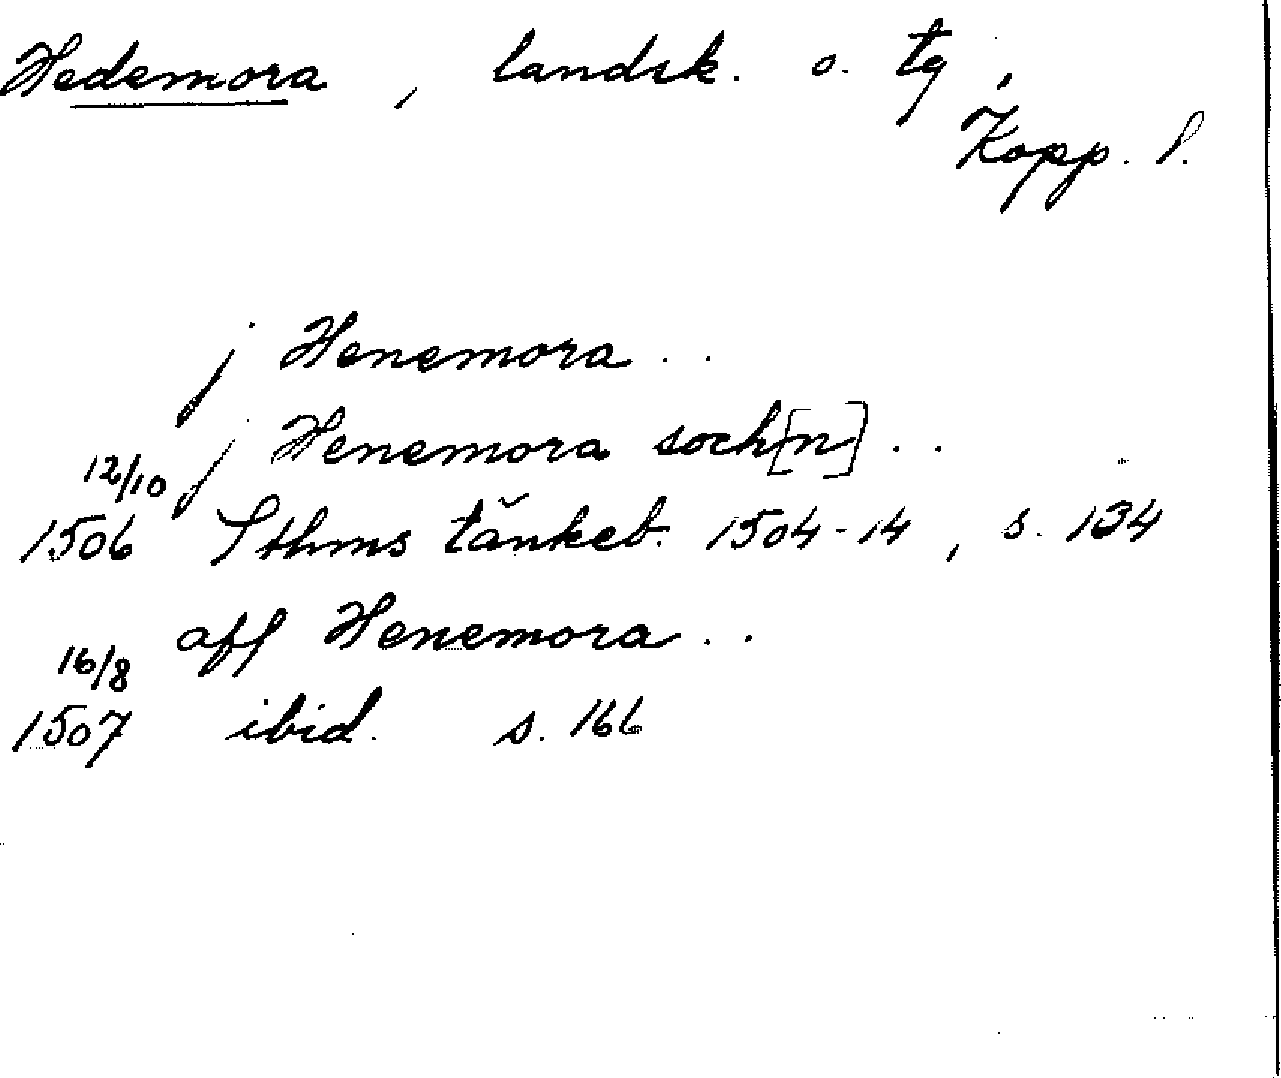 Hedemora, landsk. o. tg,
Kopp. l.
j Henemora . .
j Henemora soch[n] . .
12/10
1506 Sthms tänkeb. 1504-14, s. 134
aff Henemora . .
16/8
1507 ibid. s. 166